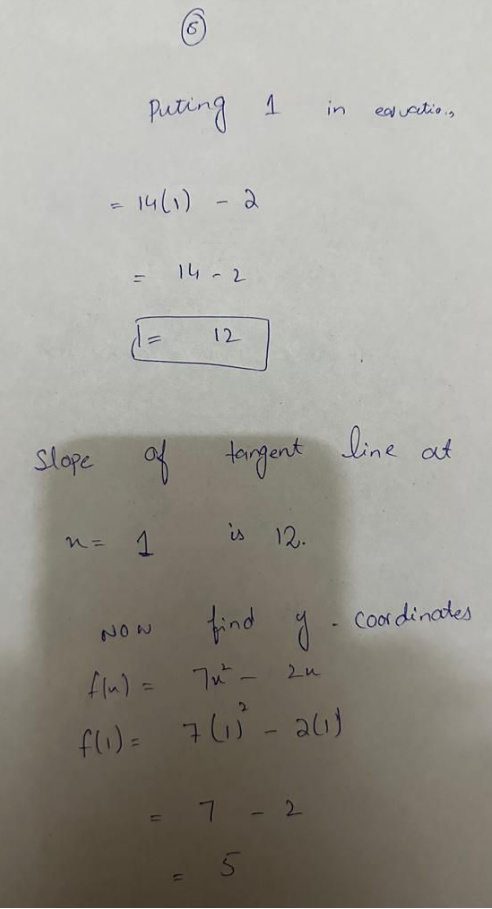 6
Puting 1 in equation,
= 14(1) - 2
= 14 - 2
= 12
Slope of tangent line at
x = 1 is 12.
NOW find y - coordinates
f(x) = 7x² - 2x
f(1) = 7(1)² - 2(1)
= 7 - 2
= 5